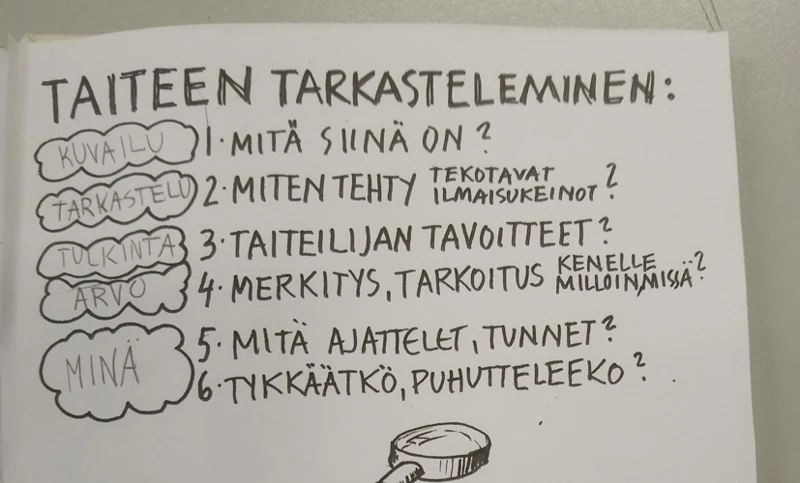 TAITEEN TARKASTELEMINEN:
KUVAILU 1. MITÄ SIINÄ ON?
TARKASTELU 2. MITEN TEHTY TEKOTAVAT ILMAISUKEINOT?
TULKINTA 3. TAITEILIJAN TAVOITTEET?
ARVO 4. MERKITYS, TARKOITUS KENELLE MILLOIN, MISSÄ?
MINÄ 5. MITÄ AJATTELET, TUNNET?
6. TYKKÄÄTKÖ, PUHUTTELEEKO?